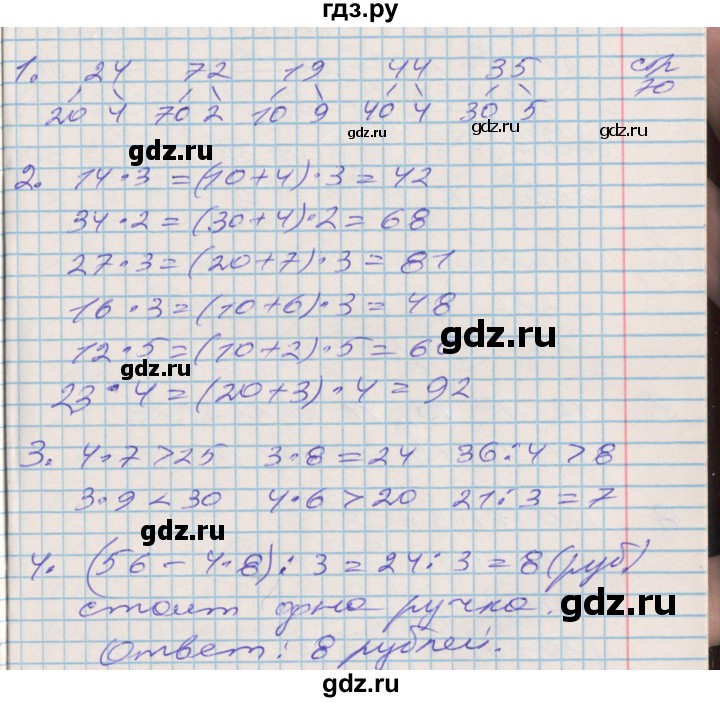 гдз.ру
1. 24 72 19 44 35 стр
20 4 70 2 10 9 40 4 30 5 70
gdz.ru gdz.ru gdz.ru
2. 14·3=(10+4)·3=42
34·2=(30+4)·2=68
27·3=(20+7)·3=81
16·3=(10+6)·3=48
gdz.ru
12·5=(10+2)·5=60
gdz.ru
23·4=(20+3)·4=92
3. 4·7>25 3·8=24 36:4>8
3·9<30 4·6>20 21:3=7
gdz.ru
4. (56-4·8):3=24:3=8(руб)
стоит одна ручка.
gdz.ru
Ответ: 8 рублей.
gdz.ru gdz.ru